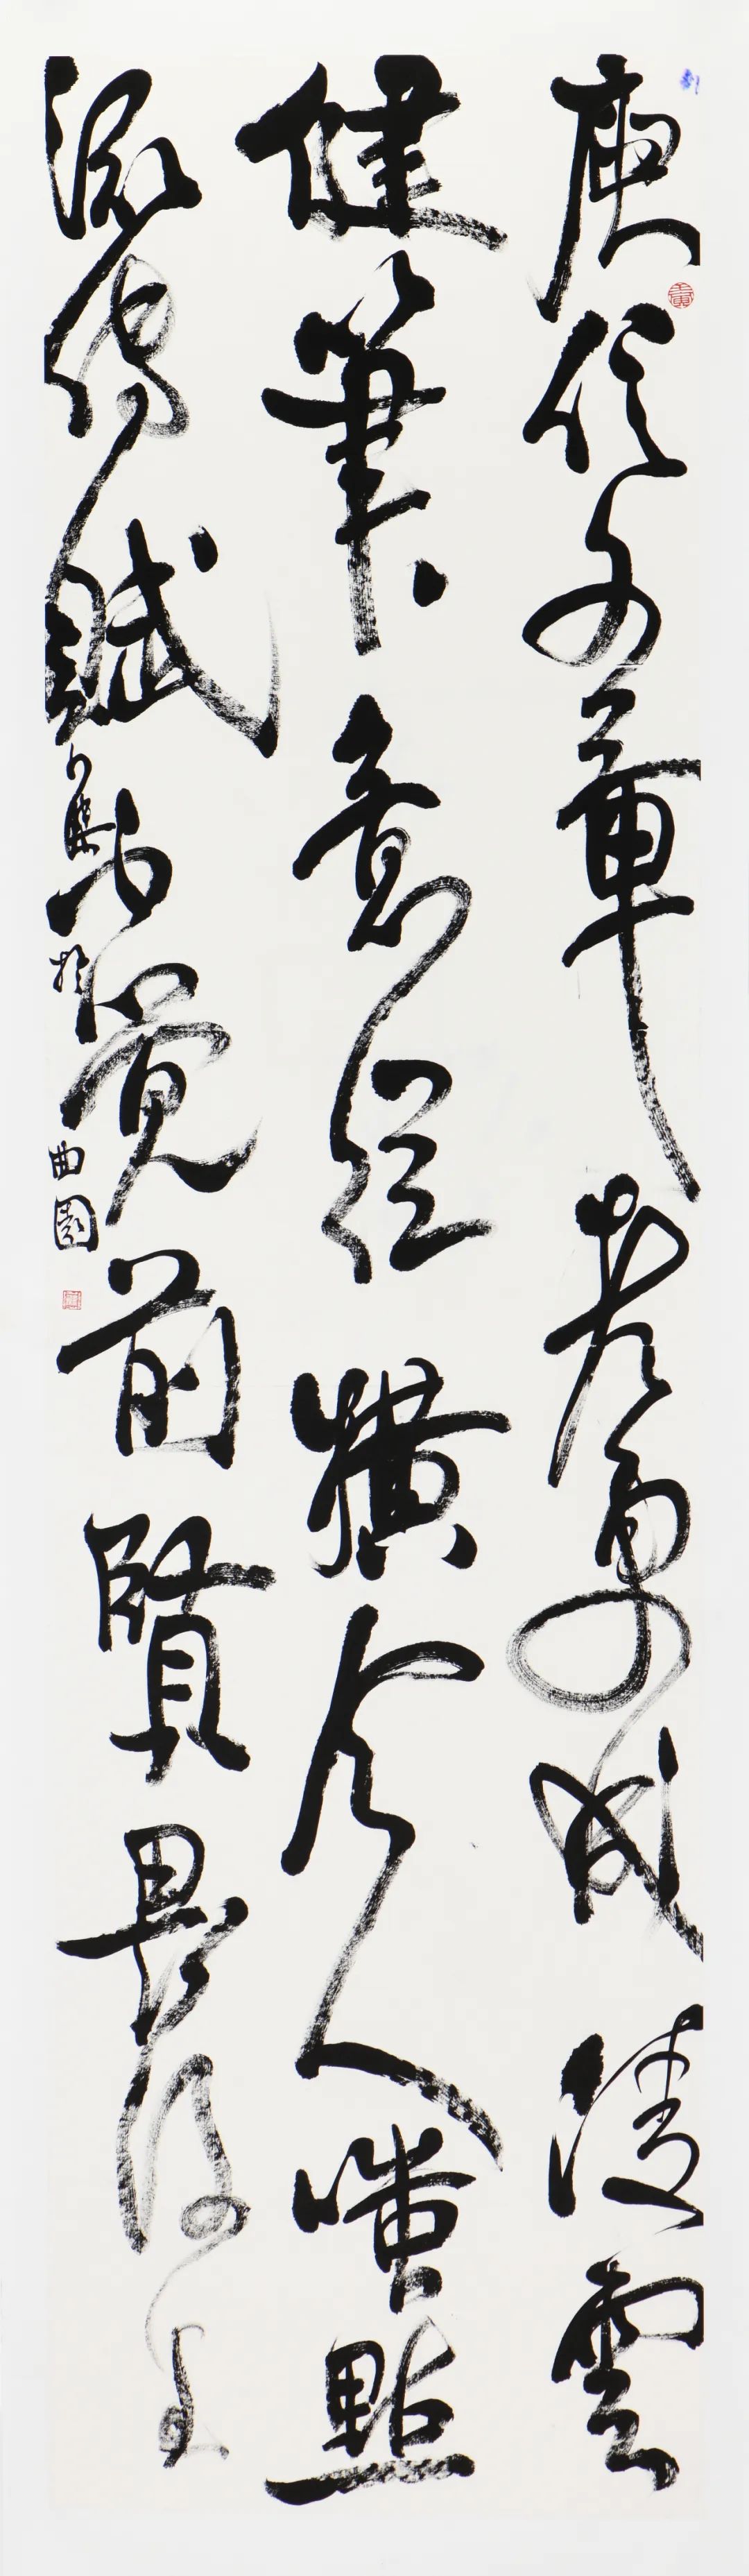 庾信文章老更成凌雲
健筆意縱橫今人嗤點
流傳賦不覺前賢畏後生
於曲園